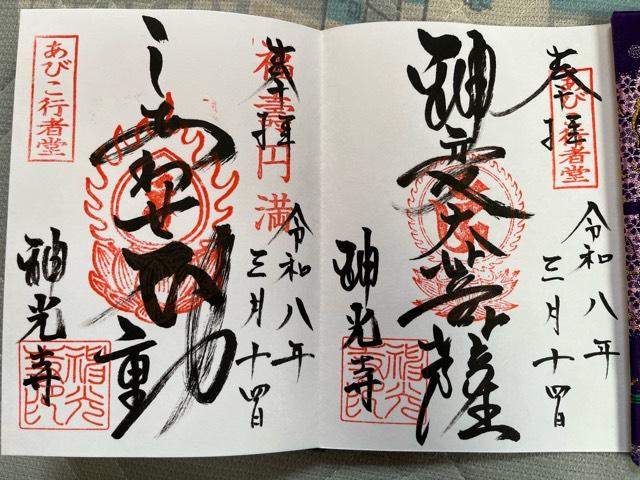 奉拝
あびこ行者堂
令和八年
三月十四日
神変大菩薩
神光寺
奉拝
福壽円満
令和八年
三月十四日
しあわせ不動
あびこ行者堂
神光寺